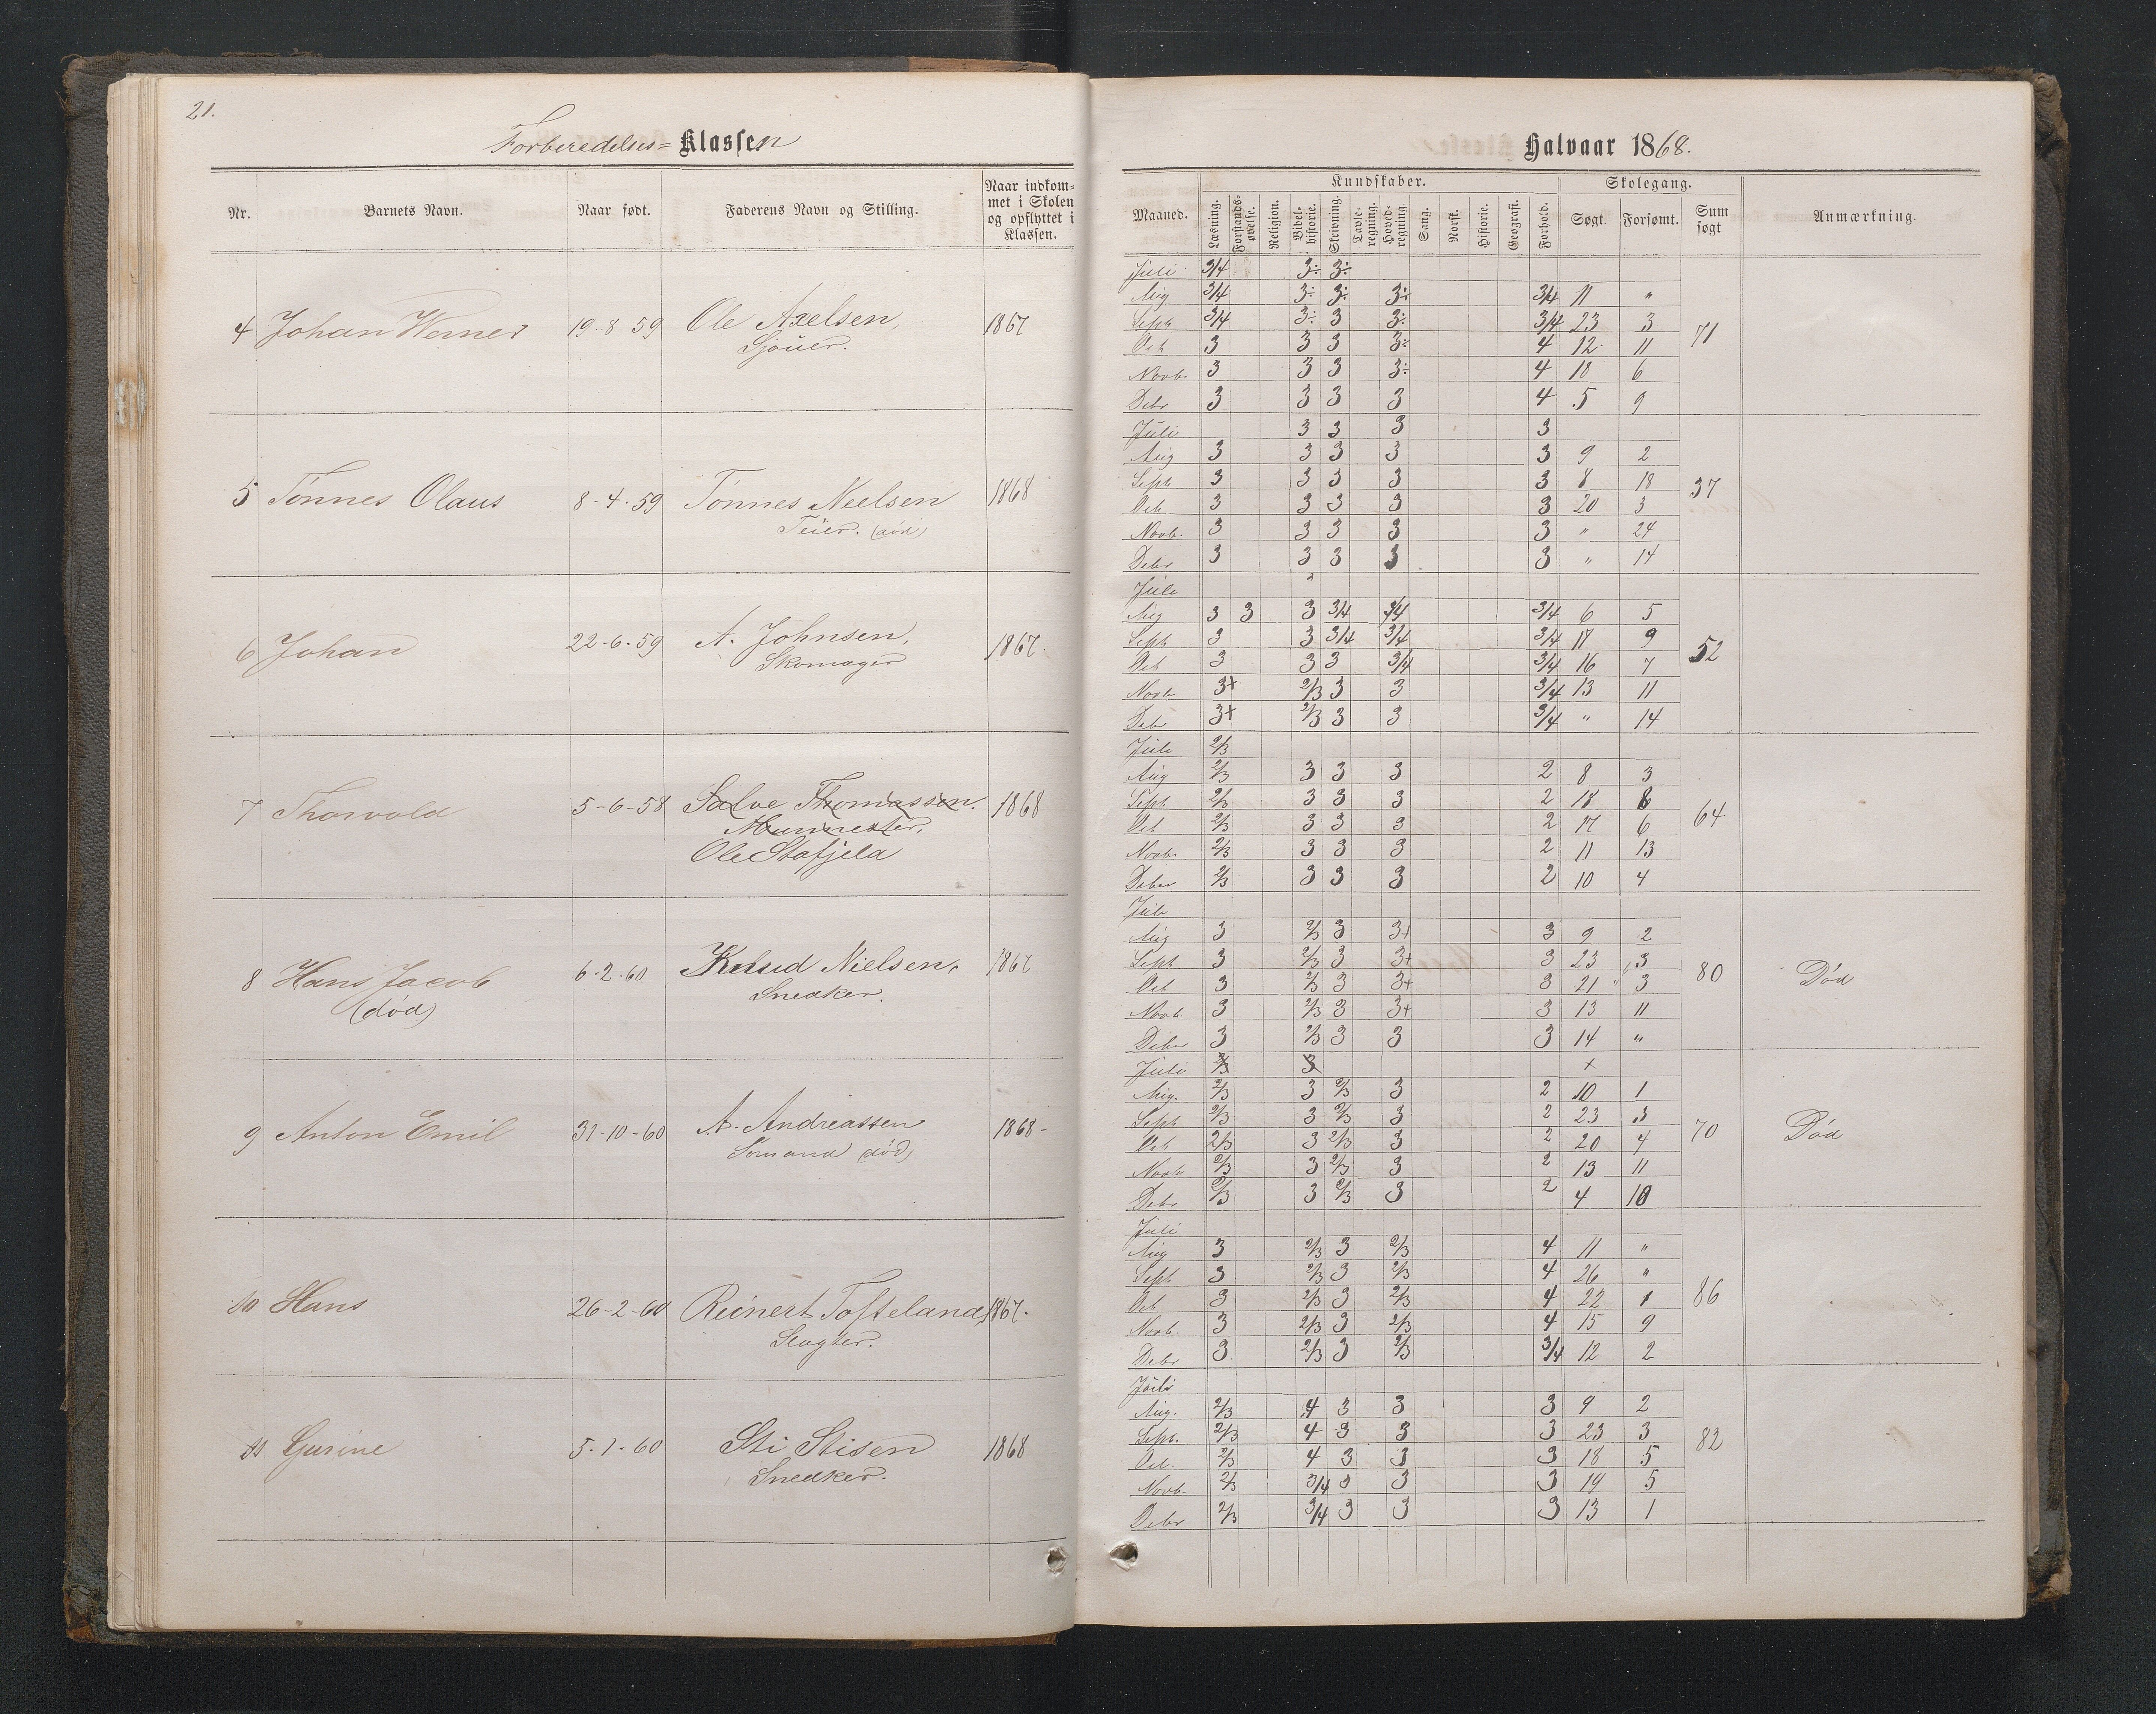 21.
Forberedelses= Klassen
Nr.
Barnets Navn.
Naar født.
Faderens Navn og Stilling.
Naar indkom-
met i Skolen
og opflyttet i
Klassen.
4 Johan Werner 19-8-59 Ole Axelsen, 1867
Sjouer.
5 Tönnes Olaus 8-4-59 Tönnes Nielsen 1868
(död)
6 Johan 22-6-59 A. Johnsen, 1867.
Skomager
7 Thorvald 5-6-58 Salve Thomassen. 1868
Murmester,
Ole Stafjeld
8 Hans Jacob 6-2-60 Knud Nielsen, 1867
(död) Snedker.
9 Anton Emil 31-10-60 A. Andreassen 1868-
Sömand (död)
10 Hans 26-2-60 Reinert Tofteland, 1867.
Slagter.
11 Gurine 5-1-60 Sti Stisen 1868
Snedker.
Halvaar 1868.
Maaned.
Kundskaber.
Læsning.
Forstands-
øvelse.
Religion.
Bibel-
historie.
Skrivning.
Tavle-
regning.
Hoved-
regning.
Sang.
Norsk.
Historie.
Geografi.
Forhold.
Skolegang.
Søgt.
Forsømt.
Sum
søgt
Anmærkning.
Juli 3/4 3÷ 3÷
Aug 3/4 3÷ 3÷ 3÷ 3/4 11 "
Sept 3/4 3÷ 3 3÷ 3/4 23 3 71
Oct 3 3 3 3÷ 4 12 11
Novb. 3 3 3 3÷ 4 18 6
Debr 3 3 3 3 4 5 9
Juli 3 3 3 3
Aug 3 3 3 3 3 9 2
Sept 3 3 3 3 3 8 18 37
Oct. 3 3 3 3 3 20 3
Novb. 3 3 3 3 3 " 24
Debr 3 3 3 3 3 " 14
Juli
Aug 3 3 3 3/4 3/4 3/4 6 5
Sept 3 3 3/4 3/4 3/4 17 9 52
Oct 3 3 3 3/4 3/4 16 7
Novb 3+ 2/3 3 3 3/4 13 11
Debr 3+ 2/3 3 3 3/4 " 14
Juli 2/3
Aug 2/3 3 3 3 2 8 3
Sept 2/3 3 3 3 2 18 8 64
Oct 2/3 3 3 3 2 17 6
Novb. 2/3 3 3 3 2 11 13
Debr 2/3 3 3 3 2 10 4
Juli
Aug 3 2/3 3 3+ 3 9 2
Sept 3 2/3 3 3+ 3 23 3 80 Död
Oct 3 2/3 3 3+ 3 21 3
Novb. 3 2/3 3 3+ 3 13 11
Debr 3 2/3 3 3 3 14 "
Juli 2/3 3 +
Aug. 2/3 3 2/3 3 2 10 1
Sept 2/3 3 2/3 3 2 23 3 70 Död
Oct 2/3 3 2/3 3 2 20 4
Novb 2/3 3 2/3 3 2 13 11
Debr 2/3 3 2/3 3 2 4 10
Juli
Aug 3 2/3 3 2/3 4 11 "
Sept 3 2/3 3 2/3 4 26 " 86
Oct 3 2/3 3 2/3 4 22 1
Novb. 3 2/3 3 2/3 4 15 9
Debr 3 2/3 3 2/3 3/4 12 2
Juli
Aug. 2/3 4 3 3 3 9 2
Sept. 2/3 4 3 3 3 23 3 82
Oct. 2/3 4 3 3 3 18 5
Novb. 2/3 3/4 3 3 3 19 5
Debr 2/3 3/4 3 3 3 13 1